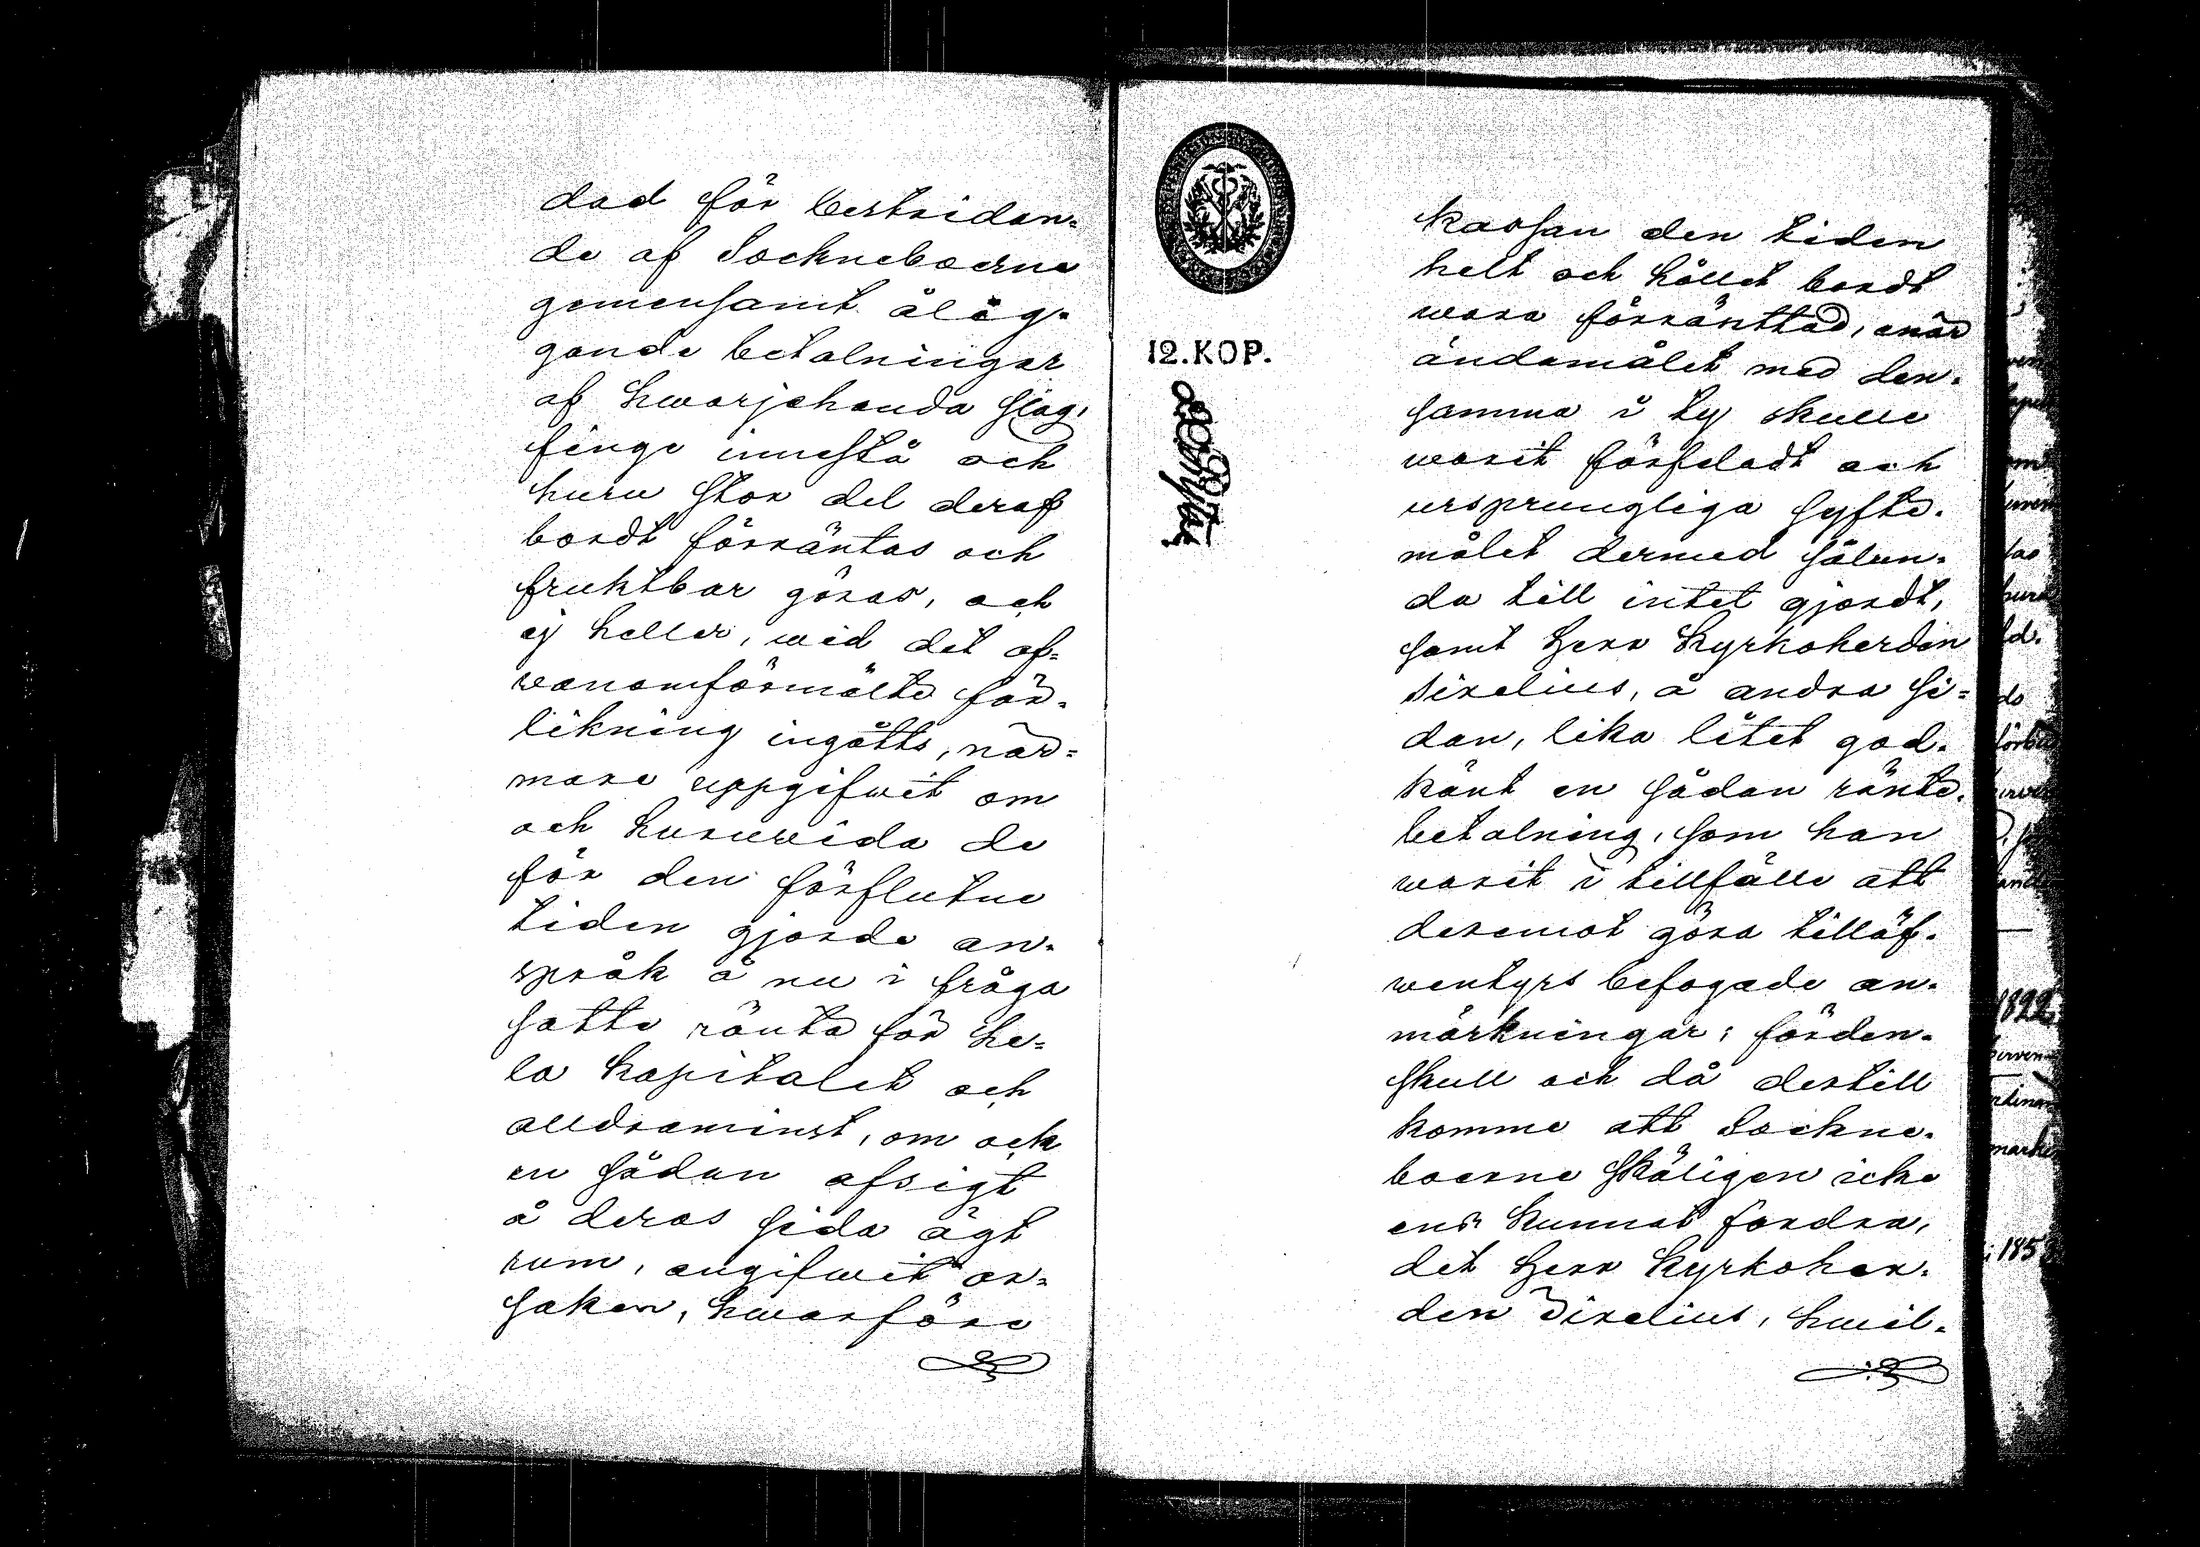 dad för bestridan-
de af Sockneboerne
gemensamt ålig-
gande betalningar
af hwarjehanda slag,
finge innestå och
huru stor del deraf
bordt förräntas och
fruktbar göras, och
ej heller, wid det of-
wanomförmälte för-
likning ingåtts, när-
mare uppgifwit om
och huruwida de
för den förflutne
tiden gjorde an-
språk å nu i fråga
satte ränta för he-
la kapitalet och
alldraminst, om ock
en sådan afsigt
å deras sida ägt
rum, angifwit or-
saken, hwarföre
12.KOP.
kassan den tiden
helt och hållet bordt
wara förräntad, enär
ändamålet med den-
samma i ty skulle
warit förfeladt och
ursprungliga syfte-
målet dermed sålun-
da till intet gjordt,
samt Herr Kyrkoherden
Sirelius, å andra si-
dan, lika litet god-
känt en sådan ränte-
betalning, som han
warit i tillfälle att
deremot göra tilläf-
wentyrs befogade an-
märkningar; förden-
skull och då dertill
komme att Sockne-
boerne skäligen icke
ens kunnat fordra,
det Herr Kyrkoher-
den Sirelius, hwil-
1822
185